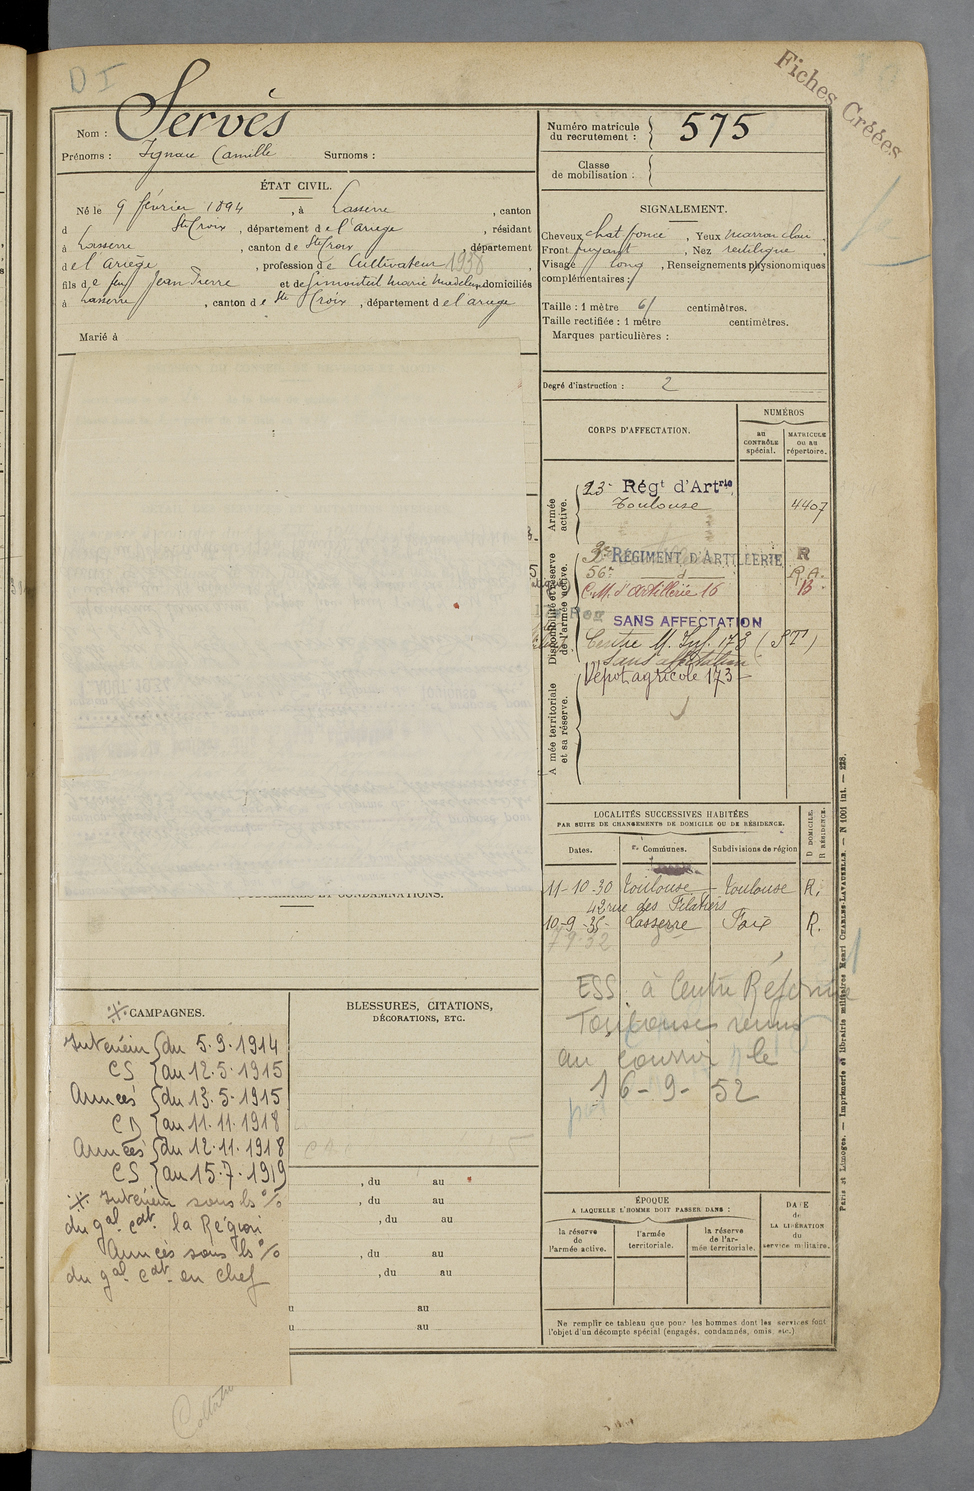 D I
Fiches Créées
Nom : Servès
Prénoms : Ignace Camille Surnoms :
Numéro matricule du recrutement : 575
Classe de mobilisation :
ÉTAT CIVIL.
Né le 9 février 1894, à Lasserre, canton
d Ste Croix, département de l'Ariège, résidant
à Lasserre, canton de Ste Croix, département
de l'Ariège, profession de Cultivateur 1938,
fils de feu Jean Pierre et de Marie domiciliés
à Lasserre, canton de Ste Croix, département de l'ariege
Marié à
SIGNALEMENT.
Cheveux chat foncé, Yeux marron clair,
Front fuyant, Nez rectiligne,
Visage long, Renseignements physionomiques
complémentaires :
Taille : 1 mètre 61 centimètres.
Taille rectifiée : 1 mètre centimètres.
Marques particulières :
Degré d'instruction : 2
CORPS D'AFFECTATION.
NUMÉROS
au CONTRÔLE spécial.
MATRICULE OU AU répertoire.
Armée active.
23e Régt d'Artrie
Toulouse 4407
Disponibilité et réserve de l'armée active.
3e RÉGIMENT D'ARTILLERIE R
56e d R.A.
C.M. d'artillerie 16 B
SANS AFFECTATION
Centre M. Inf. 178 (ST)
Sans affectation
Dépot agricole 173
A mée territoriale et sa réserve.
LOCALITÉS SUCCESSIVES HABITÉES
PAR SUITE DE CHANGEMENTS DE DOMICILE OU DE RÉSIDENCE.
Dates.
Communes.
Subdivisions de région
D DOMICILE.
R RÉSIDENCE.
11-10-30 Toulouse Toulouse R.
42 rue des Filatiers
10-9-35 Lasserre Foix R.
7 9 32
ESS à Centre Réforme
Toulouse remis
au courrier le
16-9-52
ET CONDAMNATIONS.
CAMPAGNES.
Intérieur du 5.9.1914
CS au 12.5.1915
Armées du 13.5.1915
CD au 11.11.1918
Armées du 12.11.1918
CS au 15.7.1919
Intérieur sous ls %
du gal cdt la Région
Armées sous ls %
du gal cdt en chef
BLESSURES, CITATIONS,
DÉCORATIONS, ETC.
, du au
, du au
, du au
, du au
, du au
u au
u au
ÉPOQUE
A LAQUELLE L'HOMME DOIT PASSER DANS :
la réserve de l'armée active.
l'armée territoriale.
la réserve de l'armée territoriale.
DATE de LA LIBÉRATION du service militaire.
Ne remplir ce tableau que pour les hommes dont les services font
l'objet d'un décompte spécial (engagés, condamnés, omis, etc.)
Paris et Limoges. — Imprimerie et librairie militaires Henri CHARLES-LAVAUZELLE. — N 1001 int. — 228.